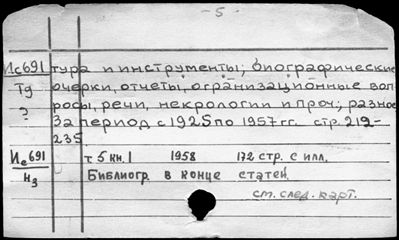 - 5 -
Ис691 тура и инструменты; биографические
Тд очерки, отчеты, организационные воп-
? росы, речи, некрологии и проч; разное
За период с 1925 по 1957 гг. стр. 219-
235
Ие691 т 5 кн. 1 1958 172 стр. с илл.
Н3 Библиогр. в конце статей.
см. след. карт.